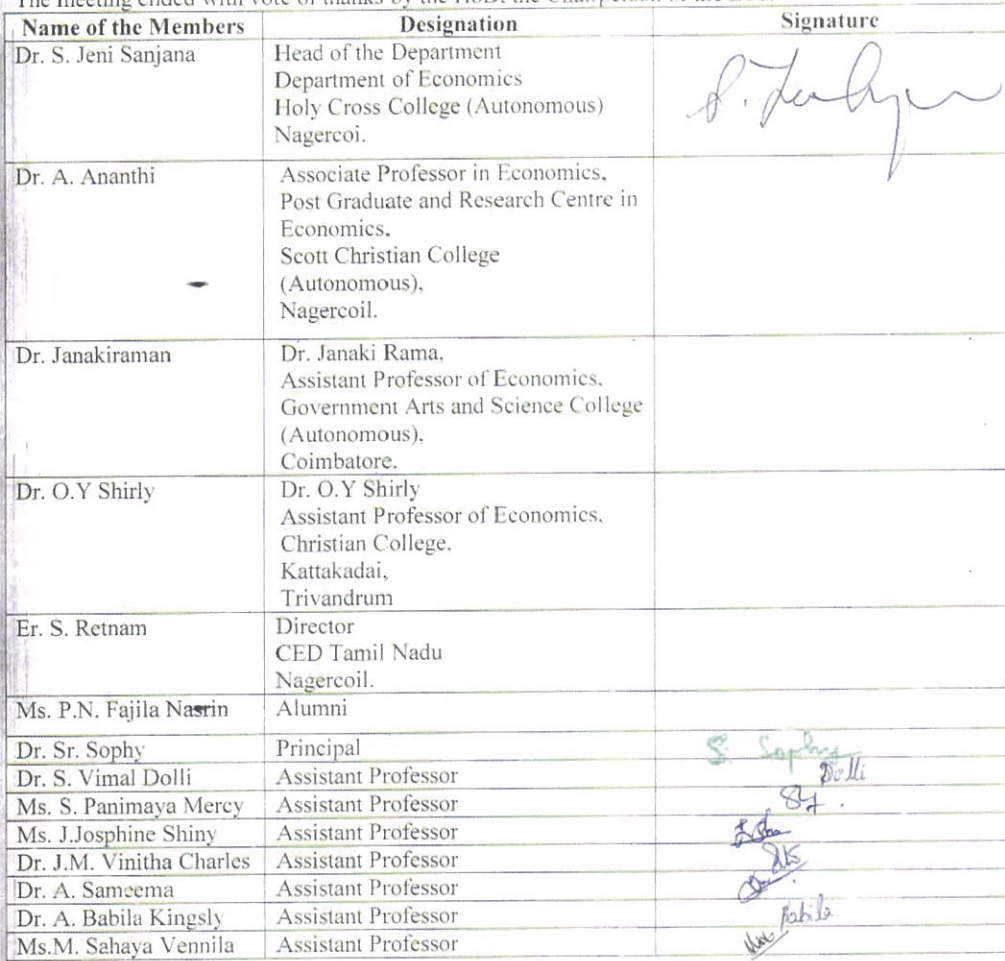 The meeting ended with vote of thanks by the HoD, the Chairperson of the
Name of the Members Designation Signature
Dr. S. Jeni Sanjana Head of the Department
Department of Economics
Holy Cross College (Autonomous)
Nagercoi.
Dr. A. Ananthi Associate Professor in Economics,
Post Graduate and Research Centre in
Economics,
Scott Christian College
(Autonomous),
Nagercoil.
Dr. Janakiraman Dr. Janaki Rama,
Assistant Professor of Economics,
Government Arts and Science College
(Autonomous),
Coimbatore.
Dr. O.Y Shirly Dr. O.Y Shirly
Assistant Professor of Economics,
Christian College,
Kattakadai,
Trivandrum
Er. S. Retnam Director
CED Tamil Nadu
Nagercoil.
Ms. P.N. Fajila Nasrin Alumni
Dr. Sr. Sophy Principal S. Sophy
Dr. S. Vimal Dolli Assistant Professor Dolli
Ms. S. Panimaya Mercy Assistant Professor
Ms. J.Josphine Shiny Assistant Professor
Dr. J.M. Vinitha Charles Assistant Professor
Dr. A. Sameema Assistant Professor
Dr. A. Babila Kingsly Assistant Professor Babila
Ms.M. Sahaya Vennila Assistant Professor